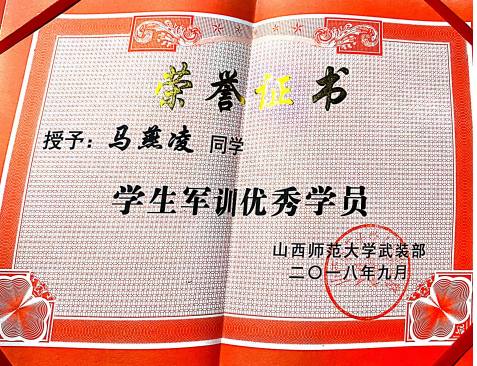 荣誉证书
授予：马燕凌 同学
学生军训优秀学员
山西师范大学武装部
二〇一八年九月